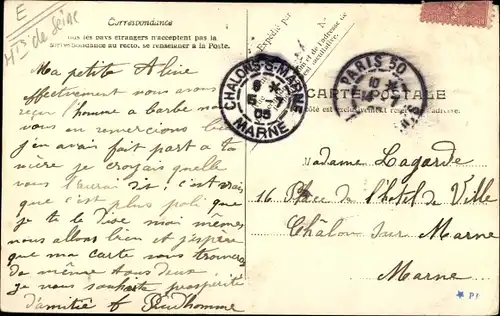 E
Hts de Seine
Correspondance
Tous les pays étrangers n'acceptent pas la
correspondance au recto. se renseigner à la Poste.
Ma petite Aline
effectivement nous avons
reçu l'homme a barbe nous
vous en remercions
j'en avais fait part a ta
mère je croyais quelle
vous l'aurai dit ! c'est vrais
que c'est plus poli que
je te le dise moi mêmes
nous allons bien et j'espère
que ma carte vous trouvera
de même tous deux
je vous souhaite prospérité
d'amitie Prudhomme
Expédié par
N°
CHALONS-S-MARNE
6
5
05
MARNE
PARIS 50
10
CARTE POSTALE
Côté est exclusivement réservé à l'adresse.
Madame Lagarde
16 Place de l'hotel de Ville
Châlon sur Marne
Marne